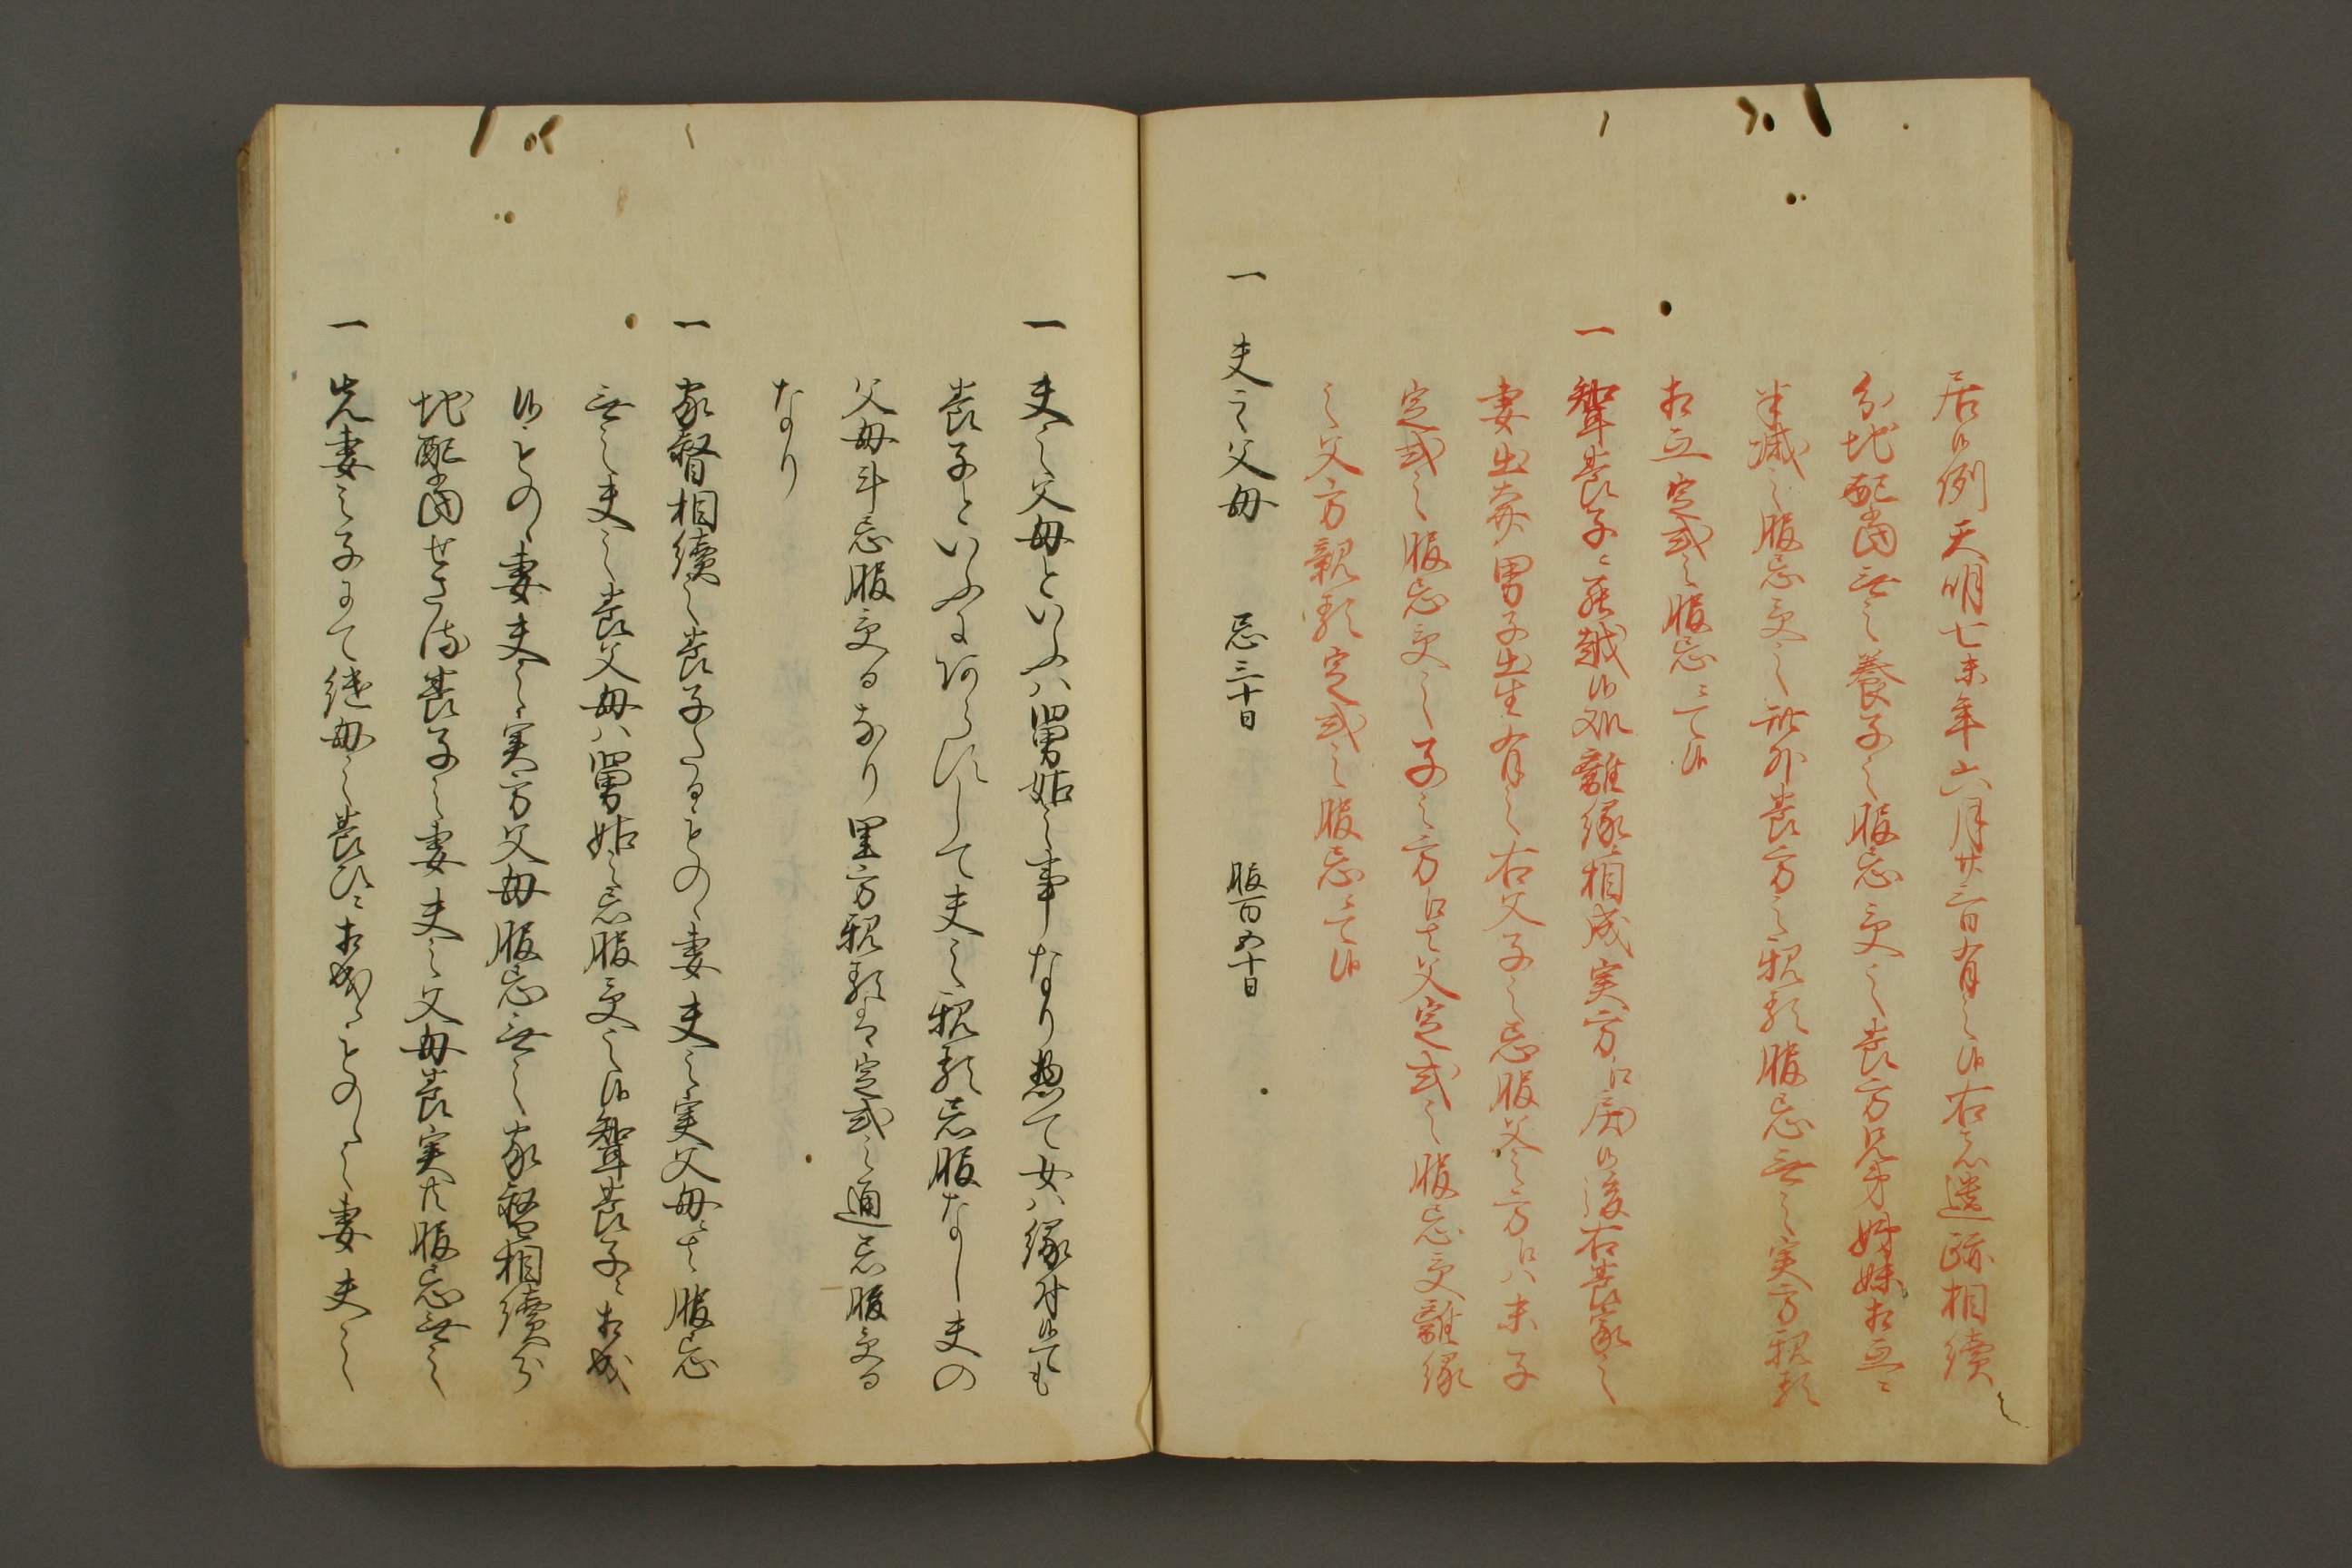 居候例天明七未年六月廿三日有之候右之遺跡相続
分地配当無之養子之服忌受之養方兄弟姉妹相互ニ
半減之服忌受之此外養方之親類服忌無之実方親類
相互定式之服忌ニ而候
一 聟養子ニ罷越候処離縁相成実方江帰候後右養家之
妻出奔男子出生有之右父子之忌服父之方江ハ末子
定式之服忌受之子之方江も父定式之服忌受離縁
之父方親類定式之服忌ニ而候
一 夫之父母 忌三十日 服百五十日
一 夫之父母といふハ舅姑之事なり惣て女ハ縁付候ても
養子といふにあらすして夫之親類忌服なし夫の
父母斗忌服受るなり里方親類は定式之通忌服受る
なり
一 家督相続之養子たるもの妻夫之実父母ニも服忌
無之夫之養父母ハ舅姑之忌服受之候聟養子ニ相成
候もの妻夫之実方父母服忌無之家督相続分
地配当せさる養子之妻夫之父母養実共服忌無之
一 先妻之子にて継母之養ひニ相成ものたり妻夫之